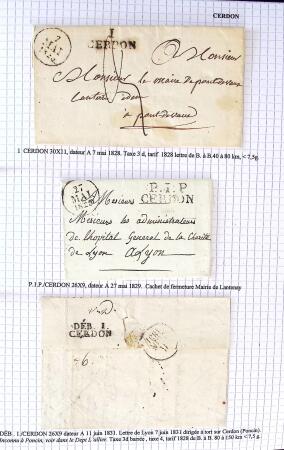 CERDON
7
MAI
1828
1
CERDON
Monsieur
Monsieur le maire de pontdevaux
à pontdevaux
1 CERDON 30X11, dateur A 7 mai 1828. Taxe 3 d, tarif 1828 lettre de B. à B.40 à 80 km, < 7,5g.
27
MAI
P.I.P
CERDON
Mesieurs
Mesieurs les administrateurs
de l'hopital General de la Charité
de Lyon ALyon
P.I.P./CERDON 26X9, dateur A 27 mai 1829. Cachet de fermeture Mairie de Lantenay
DÉB. 1.
CERDON
6.
DÉB . 1./CERDON 26X9 dateur A 11 juin 1831. Lettre de Lyon 7 juin 1831 dirigée à tort sur Cerdon (Poncin).
Inconnu à Poncin, voir dans le Dept L'allier. Taxe 3d barrée, taxe 4, tarif 1828 de B. à B. 80 à 150 km < 7,5g.